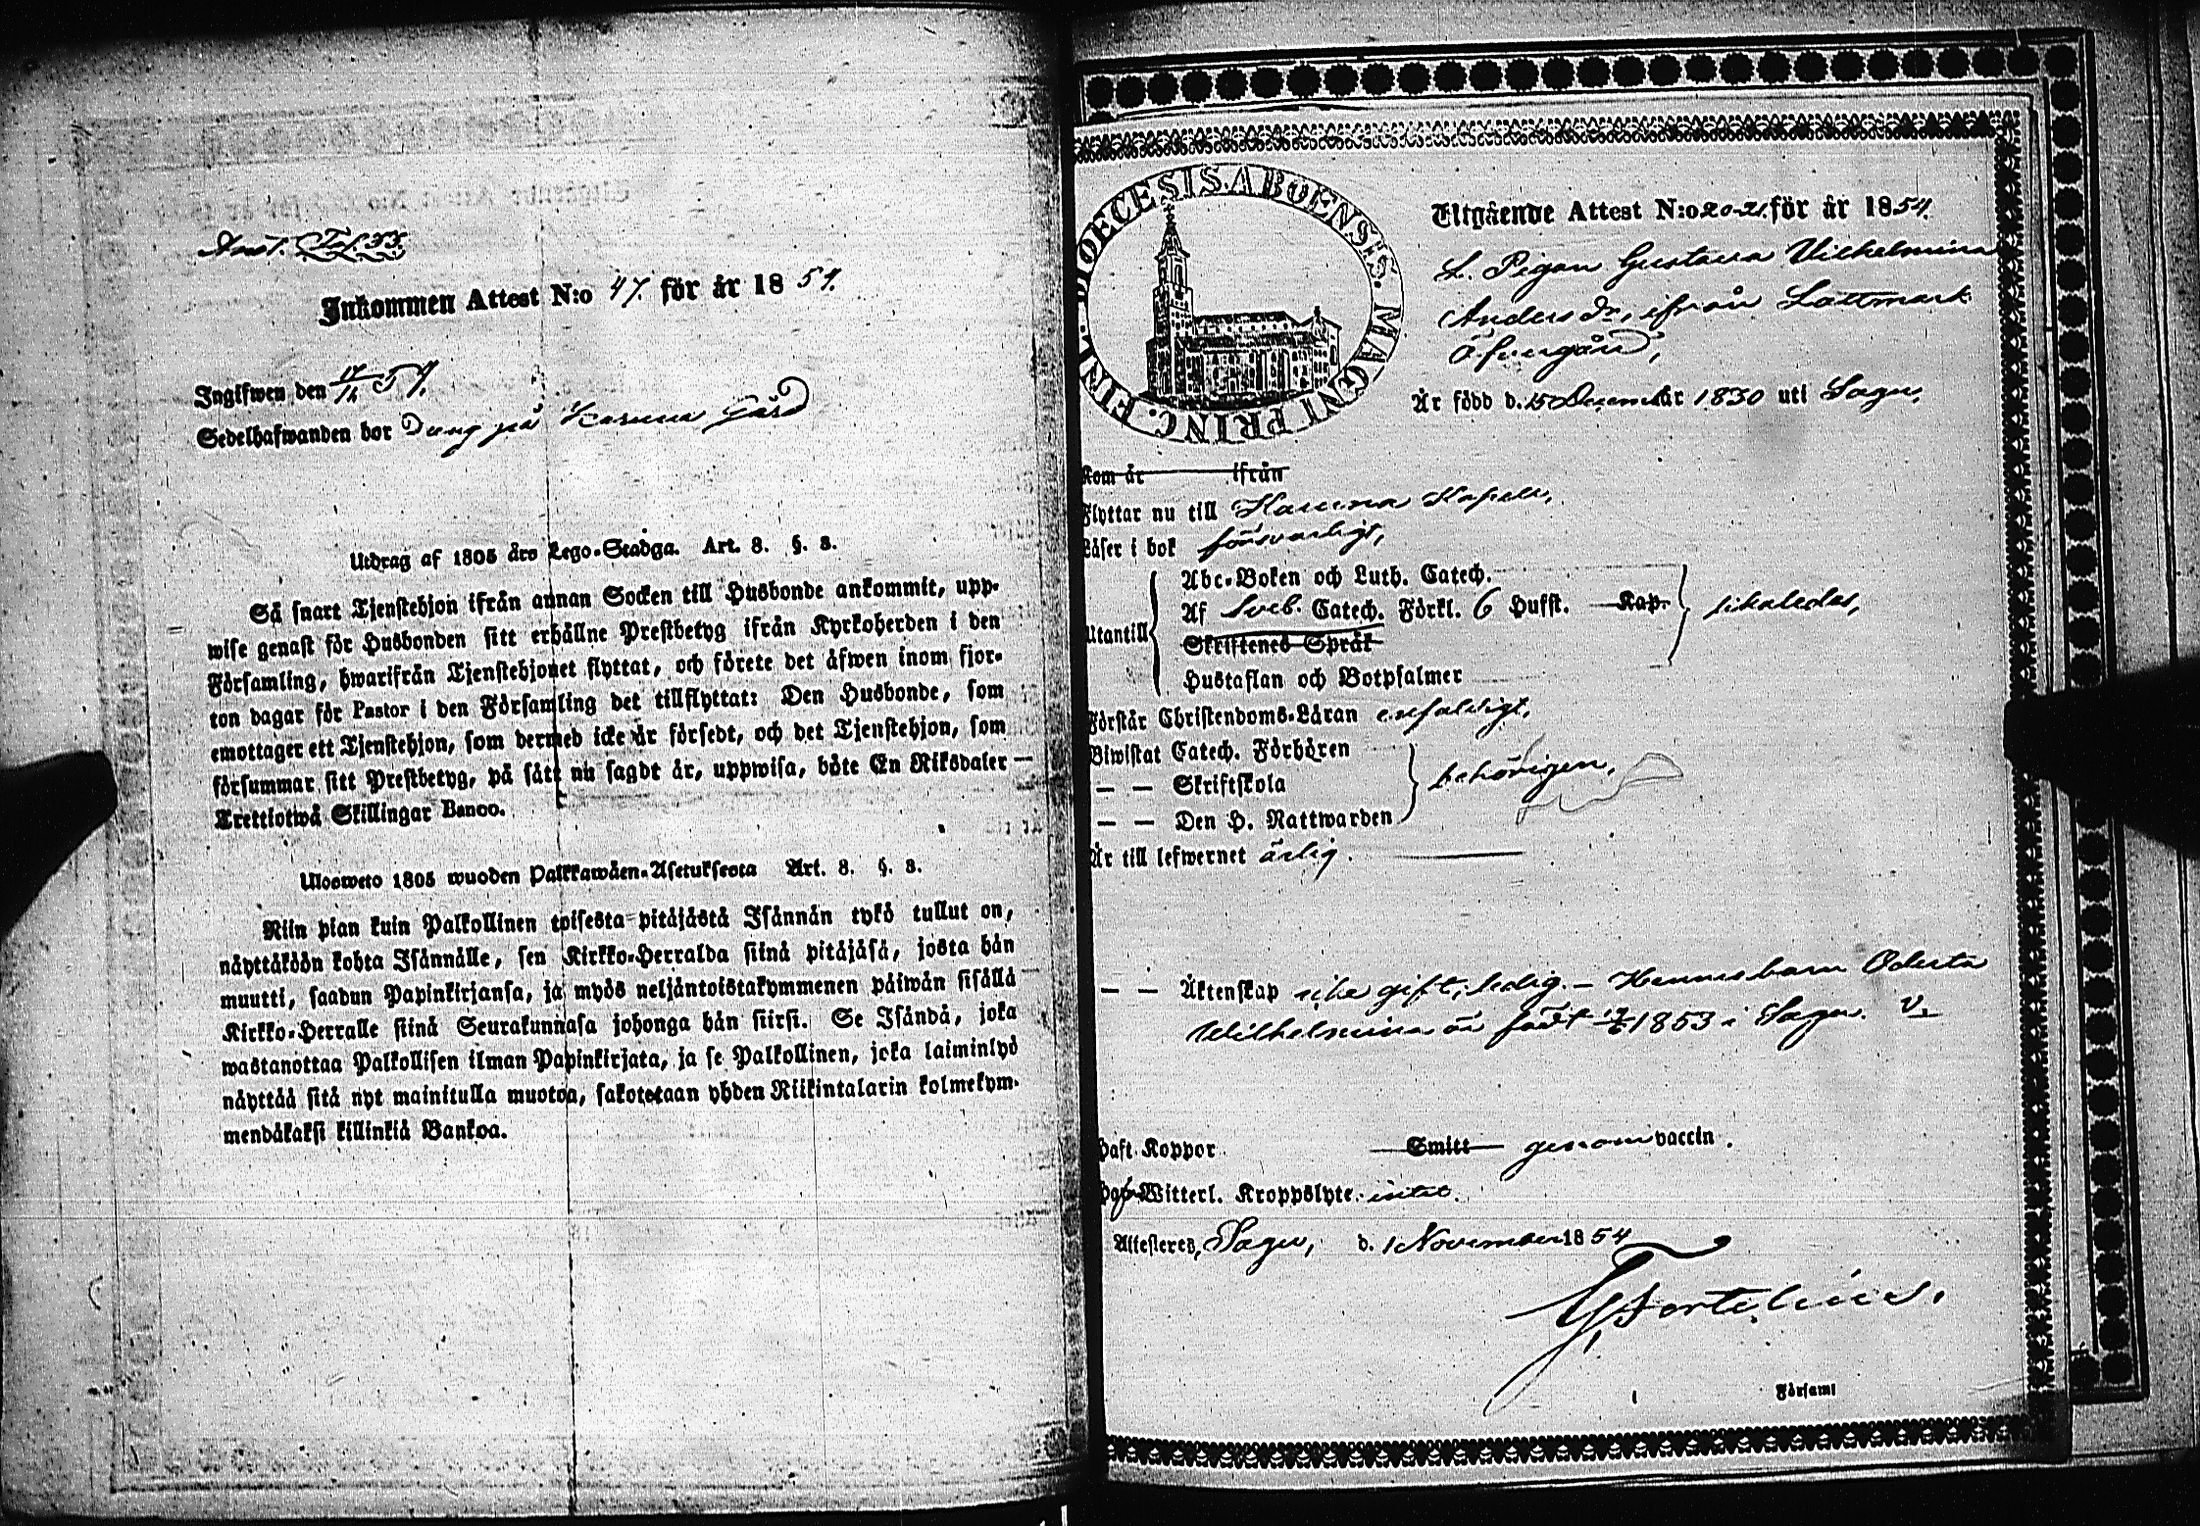 Anot. Fol. 33.
Inkommen Attest N:o 47. för år 1854.
Ingifwen den 17/12 54.
Sedelhafwanden bor på Karuna Gård
Utdrag af 1805 års Lego-Stadga. Art. 8. §. 8.
Så snart Tjenstehjon ifrån annan Socken till Husbonde ankommit, upp-
wise genast för Husbonden sitt erhållne Prestbetyg ifrån Kyrkoherden i den
Församling, hwarifrån Tjenstehjonet flyttat, och förete det äfwen inom fjor-
ton dagar för Pastor i den Församling det tillflyttat: Den Husbonde, som
emottager ett Tjenstehjon, som dermed icke är försedt, och det Tjenstehjon, som
försummar sitt Prestbetyg, på sätt nu sagdt är, uppwisa, böte En Riksdaler
Trettiotwå Skillingar Banco.
Ulosweto 1805 wuoden Palkkawäen-Asetuksesta Art. 8. §. 8.
Niin pian kuin Palkollinen toisesta pitäjästä Isännän tykö tullut on,
näyttäköön kohta Isännälle, sen Kirkko-Herralda siinä pitäjäsä, josta hän
muutti, saadun Papinkirjansa, ja myös neljäntoistakymmenen päiwän sisällä
Kirkko-Herralle siinä Seurakunnasa johonga hän siirsi. Se Isändä, joka
wastanottaa Palkollisen ilman Papinkirjata, ja se Palkollinen, joka laiminlyö
näyttää sitä nyt mainitulla muotoa, sakotetaan yhden Riikintalarin kolmekym-
mendäkaksi killinkiä Bankoa.
FINL. DIOECESIS ABOENSIS. MAGNI PRINC.
Utgående Attest N:o 20-21. för år 1854.
L. Pigan Gustava Vilhelmina
Anders dr, ifrån Lattmark
Öfvergård,
Är född d. 15 December år 1830 uti Sagu.
Kom år ifrån
Flyttar nu till Karuna Kapell.
Läser i bok försvarligt,
Abc-Boken och Luth. Catech.
Utantill Af Sveb. Catech. Förkl. 6 Hufst. Kap. likaledes,
Skriftenes Språk
Hustaflan och Botpsalmer
Förstår Christendoms-Läran enfaldigt,
Biwistat Catech. Förhören
— — Skriftskola behörigen,
— — Den H. Nattwarden
Är till lefwernet ärlig.
— — Äktenskap icke gift, ledig. – Hennes barn
Wilhelmina är född 1853 i Sagu. V.
Haft Koppor Smitt genom vaccin.
Witterl. Kroppslyte intet.
Attesteres, Sagu, d. 1 November 1854
G. Fortelius.
Församl